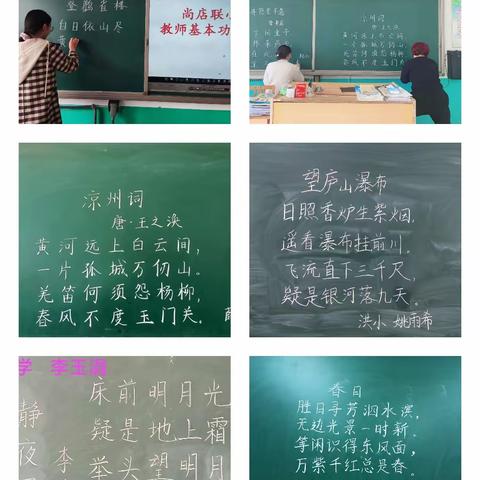 登鹳雀楼
白日依山尽
黄
尚店联小
教师基本功
凉州词
黄河远上白云间,
一片孤城万仞山。
羌笛何须怨杨柳,
春风不度玉门关。
凉州词
唐·王之涣
黄河远上白云间,
一片孤城万仞山。
羌笛何须怨杨柳,
春风不度玉门关。
望庐山瀑布
日照香炉生紫烟,
遥看瀑布挂前川。
飞流直下三千尺,
疑是银河落九天。
洪小 姚雨希
学 李玉
静夜
李
床前明月光
疑是地上霜
举头望明月
春日
胜日寻芳泗水滨,
无边光景一时新。
等闲识得东风面,
万紫千红总是春。